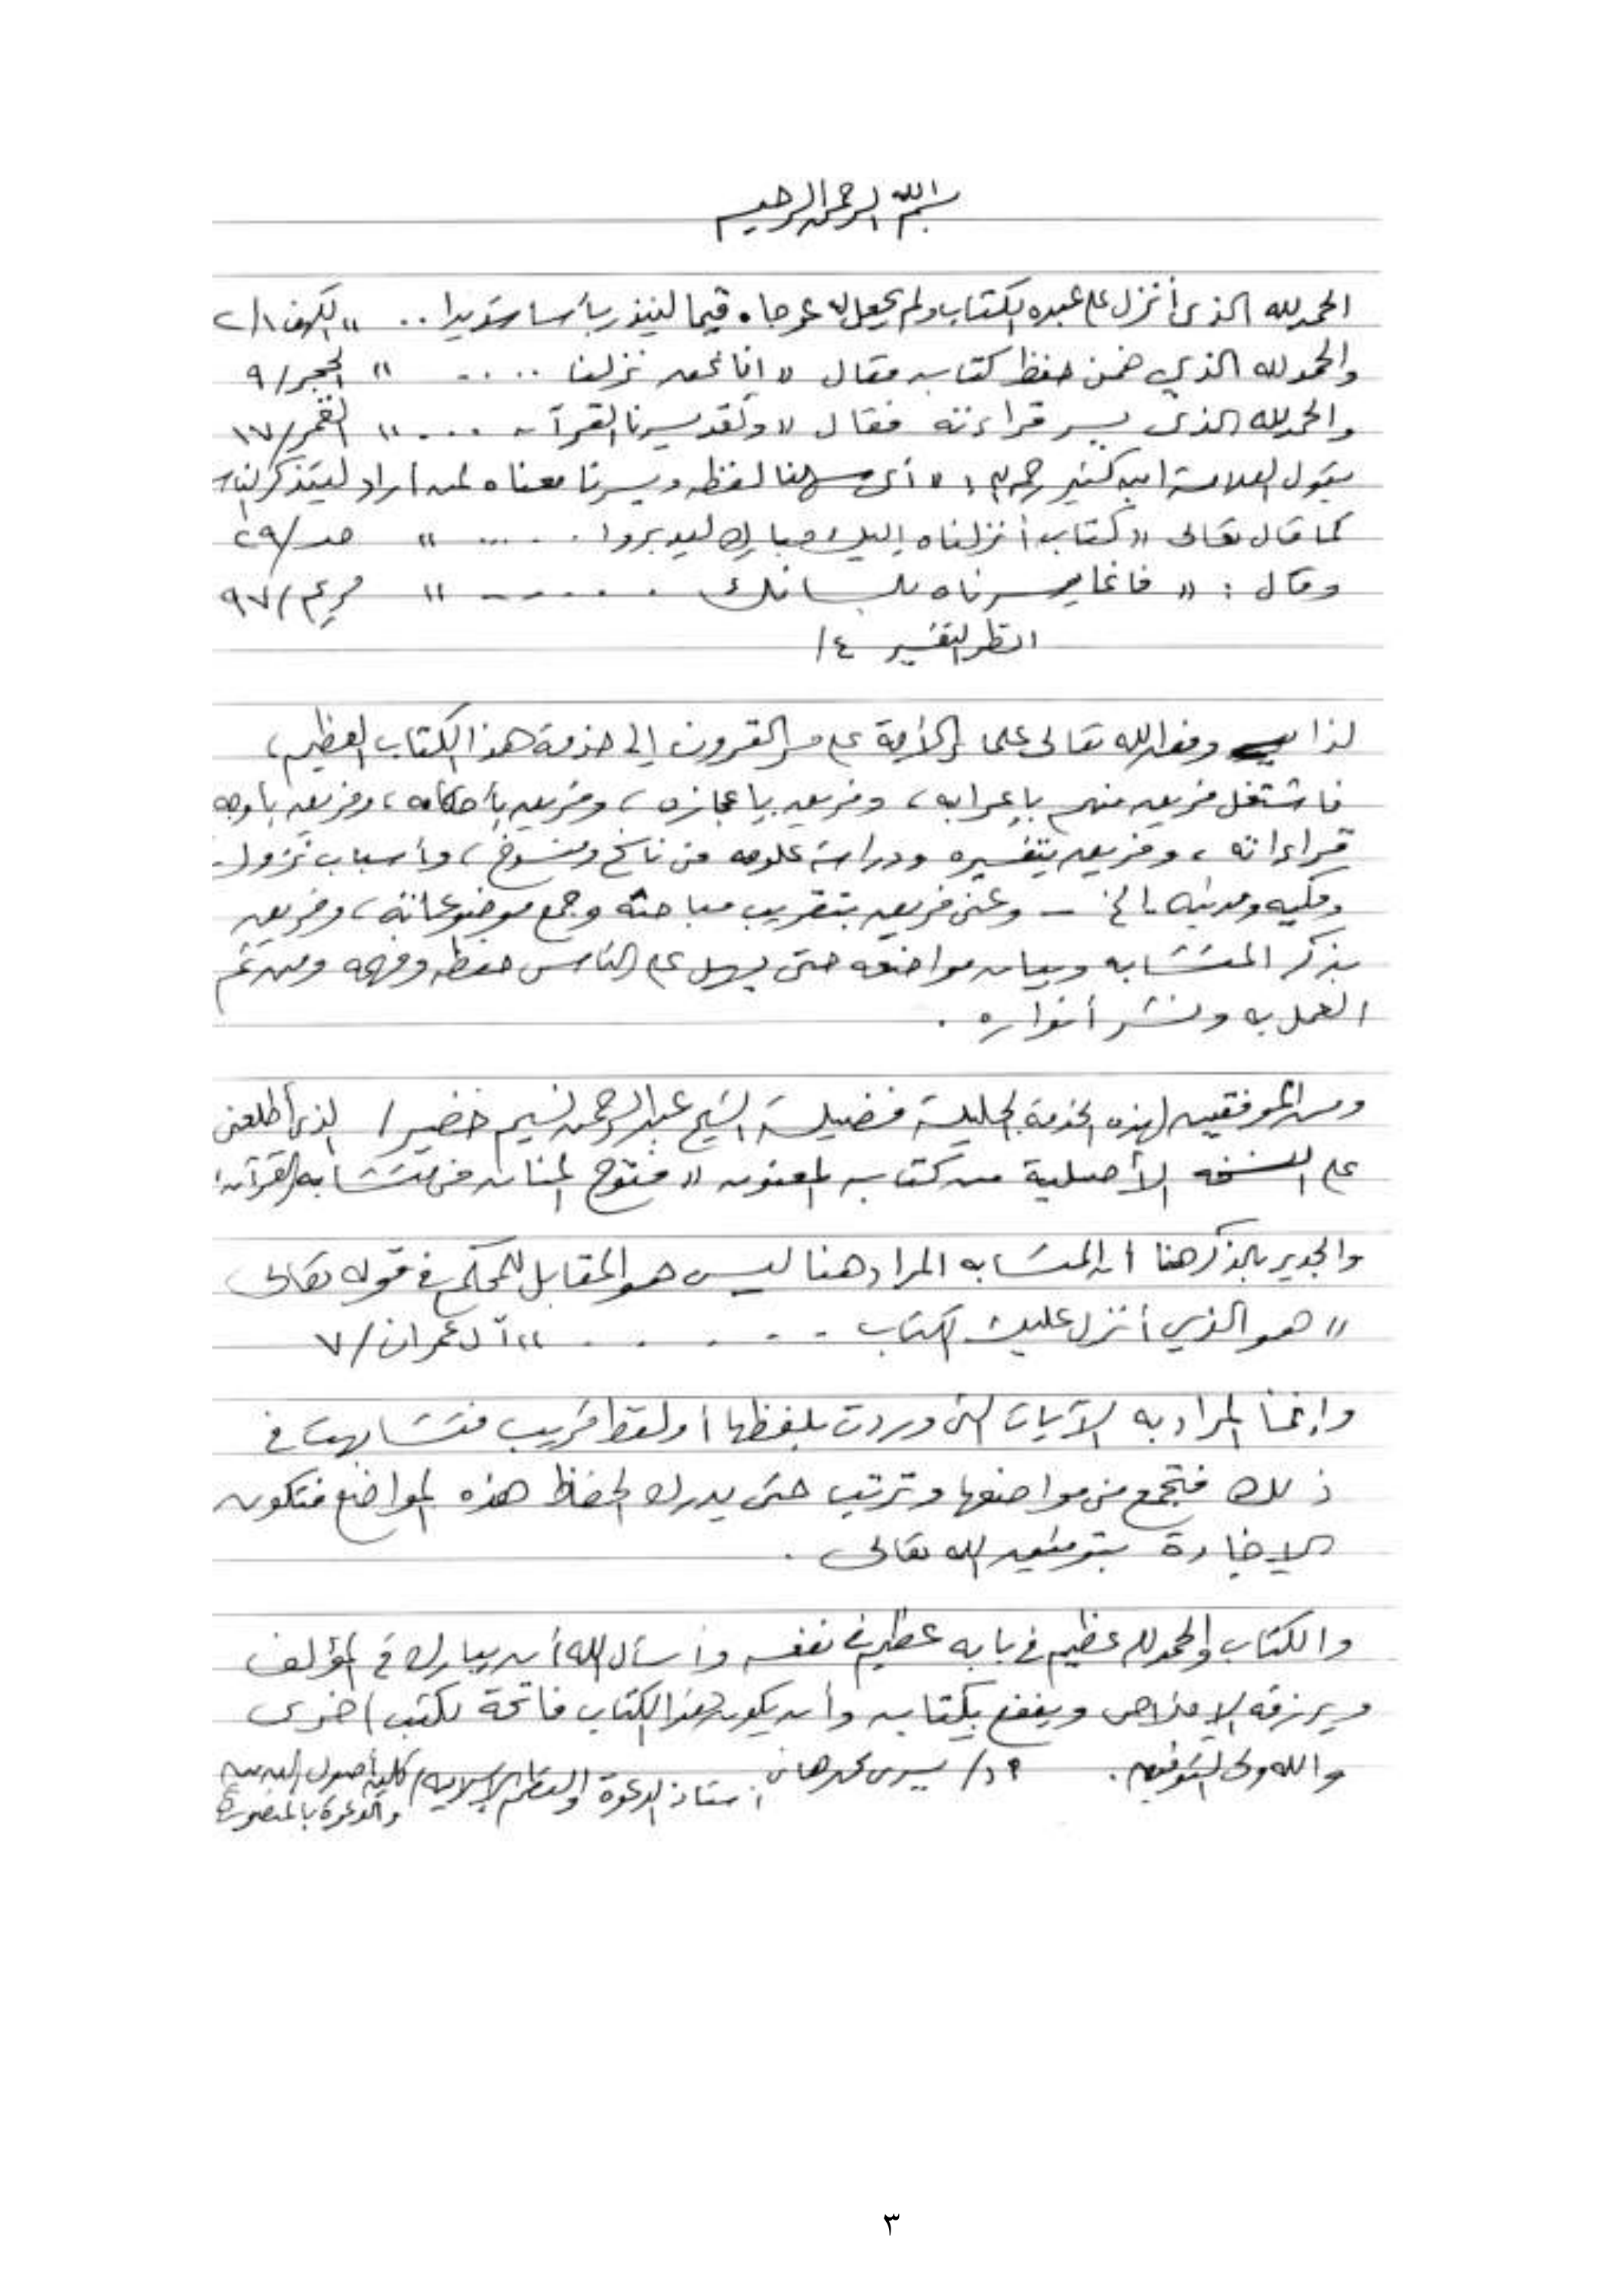 بسم الله الرحمن الرحيم
الحمد لله الذى أنزل على عبده الكتاب ولم يجعل له عوجا . قيما لينذر بأسا شديدا .. " الكهف ١/٢
والحمد لله الذي ضمن حفظ كتابه فقال " إنا نحن نزلنا .... " الحجر/٩
والحمد لله الذى يسر قراءته فقال " ولقد يسرنا القرآن .... " القمر/١٧
يقول العلامة ابن كثير رحمه الله : " أى سهلنا لفظه ويسرنا معناه لمن أراد ليتذكر الناس
كما قال تعالى " كتاب أنزلناه إليك مبارك ليدبروا ...... " ص/٢٩
وقال : " فإنما يسرناه بلسانك ...... " مريم/٩٧
انظر التفسير ٤/
لذا وفق الله تعالى علماء الأمة على مر القرون إلى خدمة هذا الكتاب العظيم ،
فاشتغل فريق منهم بإعرابه ، وفريق بإعجازه ، وفريق بأحكامه ، وفريق بأوجه
قراءاته ، وفريق بتفسيره ودراسة علومه من ناسخ ومنسوخ ، وأسباب نزول
ومكيه ومدنيه .. الخ - وعنى فريق بتقريب مباحثه وجمع موضوعاته ، وفريق
بذكر المتشابه وبيان مواضعه حتى يسهل على الناس حفظه وفهمه ومن ثم
العمل به ونشر أنواره .
ومن الموفقين لهذه الخدمة الجليلة فضيلة الشيخ عبد الرحمن نسيم خضير / الذى أطلعنى
على النسخه الأصلية من كتابه المعنون " فتوح المنان فى متشابه القرآن "
والجدير بالذكر هنا أن المتشابه المراد هنا ليس هو المقابل للمحكم في قوله تعالى
" هو الذي أنزل عليك الكتاب ...... " آل عمران/٧
وإنما المراد به الآيات التى وردت بلفظها أو لفظ قريب فتشابهت في
ذلك فتجمع من مواضعها وترتب حتى يدرك الحفاظ هذه المواضع فتكون
الإفادة بتوفيق الله تعالى .
والكتاب والحمد لله عظيم في بابه عظيم فى نفعه وأسأل الله أن يبارك في المؤلف
ويرزقه الإخلاص وينفع بكتابه وأن يكون هذا الكتاب فاتحة لكتب أخرى
والله ولى التوفيق . أ د/ يسرى محمد هانى أستاذ الدعوة والنظم الإسلامية / كلية أصول الدين
والدعوة بالمنصورة
٣